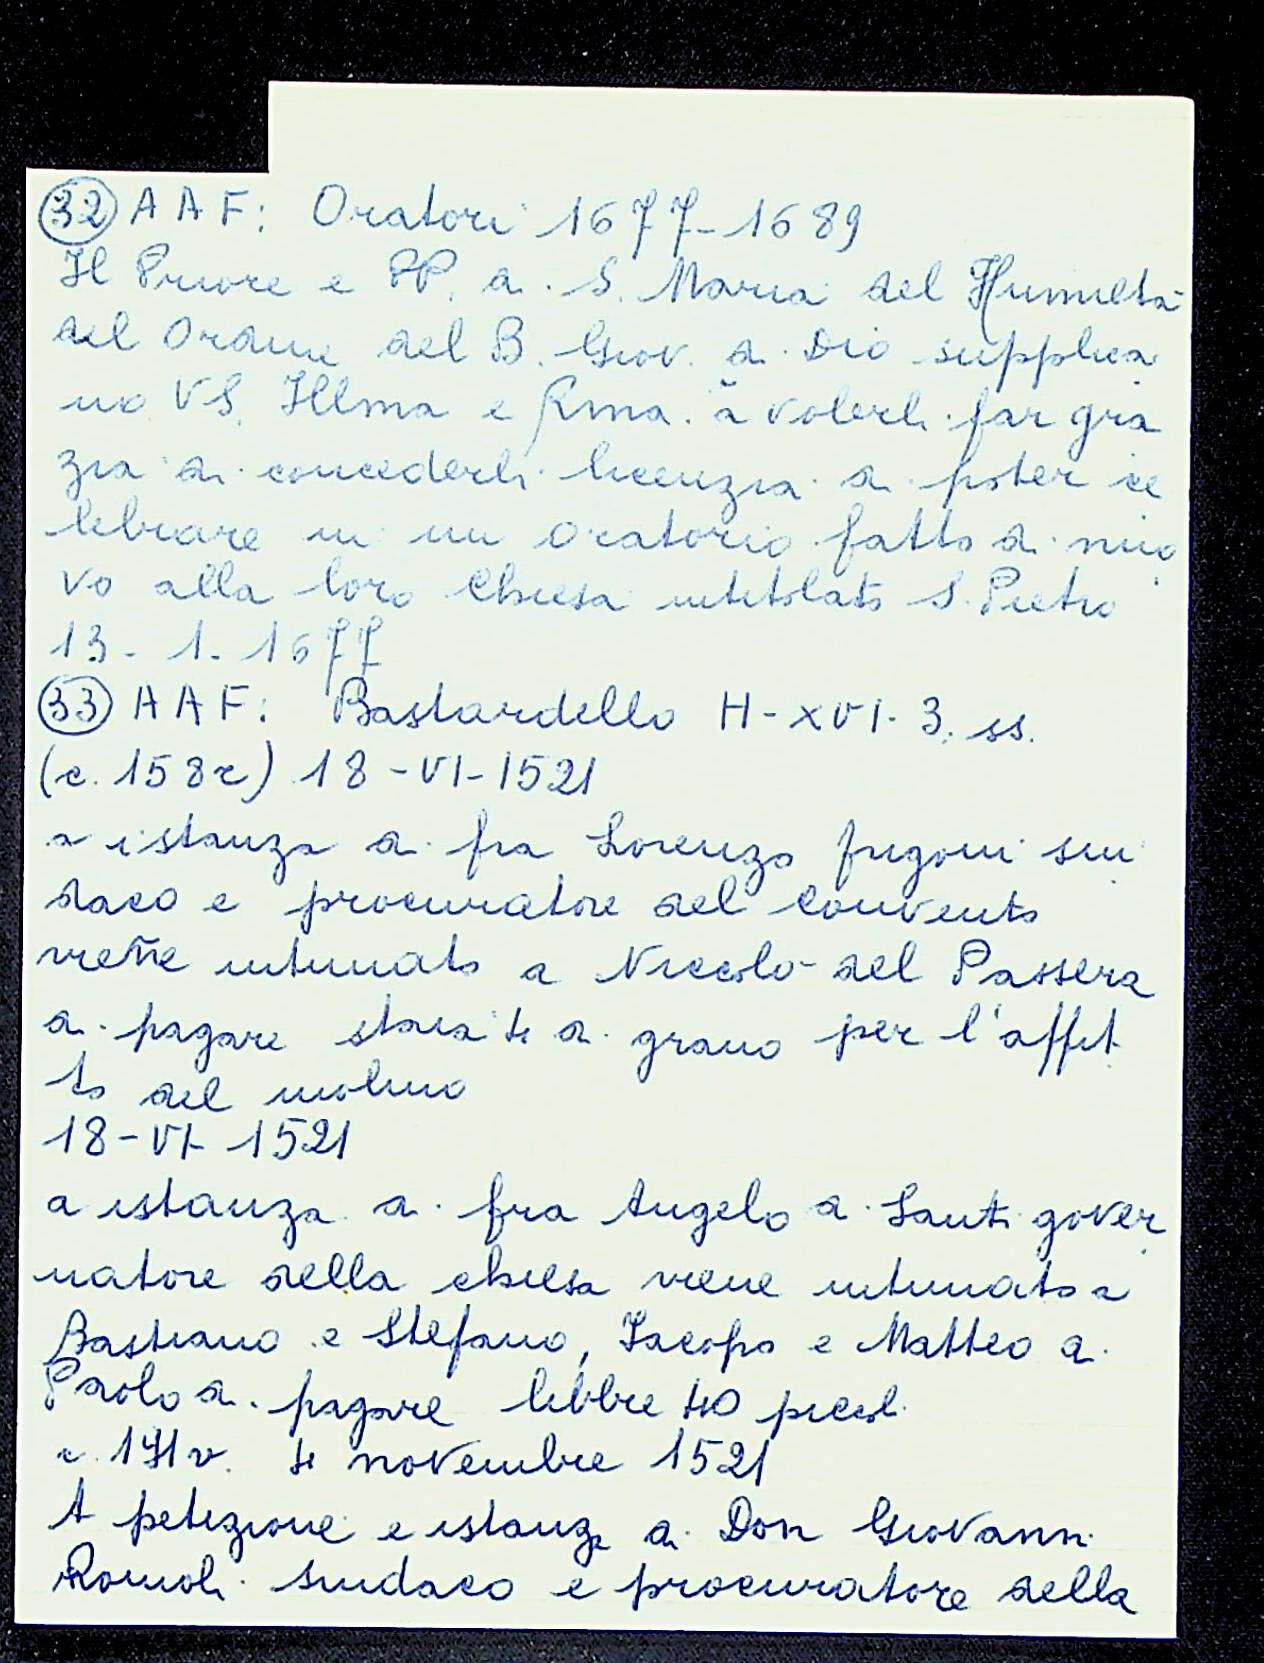 (32) A A F: Oratori 1677-1689
Il Priore e PP. di S. Maria del Humiltà
del Ordine del B. Giov. di Dio supplica
no VS. Illma e Rma. à volerli far gra
zia di concederli licenzia di poter ce
lebrare in un oratorio fatto di nuo
vo alla loro Chiesa intitolato S. Pietro
13-1-1677
(33) A A F: Bastardello H-XVI-3. ss.
(c. 158r) 18-VI-1521
a istanza di fra Lorenzo frigoni sin
daco e procuratore del Convento
viene intimato a Niccolò del Passera
di pagare staia 4 di grano per l'affit
to del molino
18-VI-1521
a istanza di fra Angelo di Santi gover
natore della chiesa viene intimato a
Bastiano e Stefano, Iacopo e Matteo di
Paolo di pagare libbre 40 piccol.
c. 171v. 4 novembre 1521
A petizione e istanza di Don Giovanni
Romoli sindaco e procuratore della